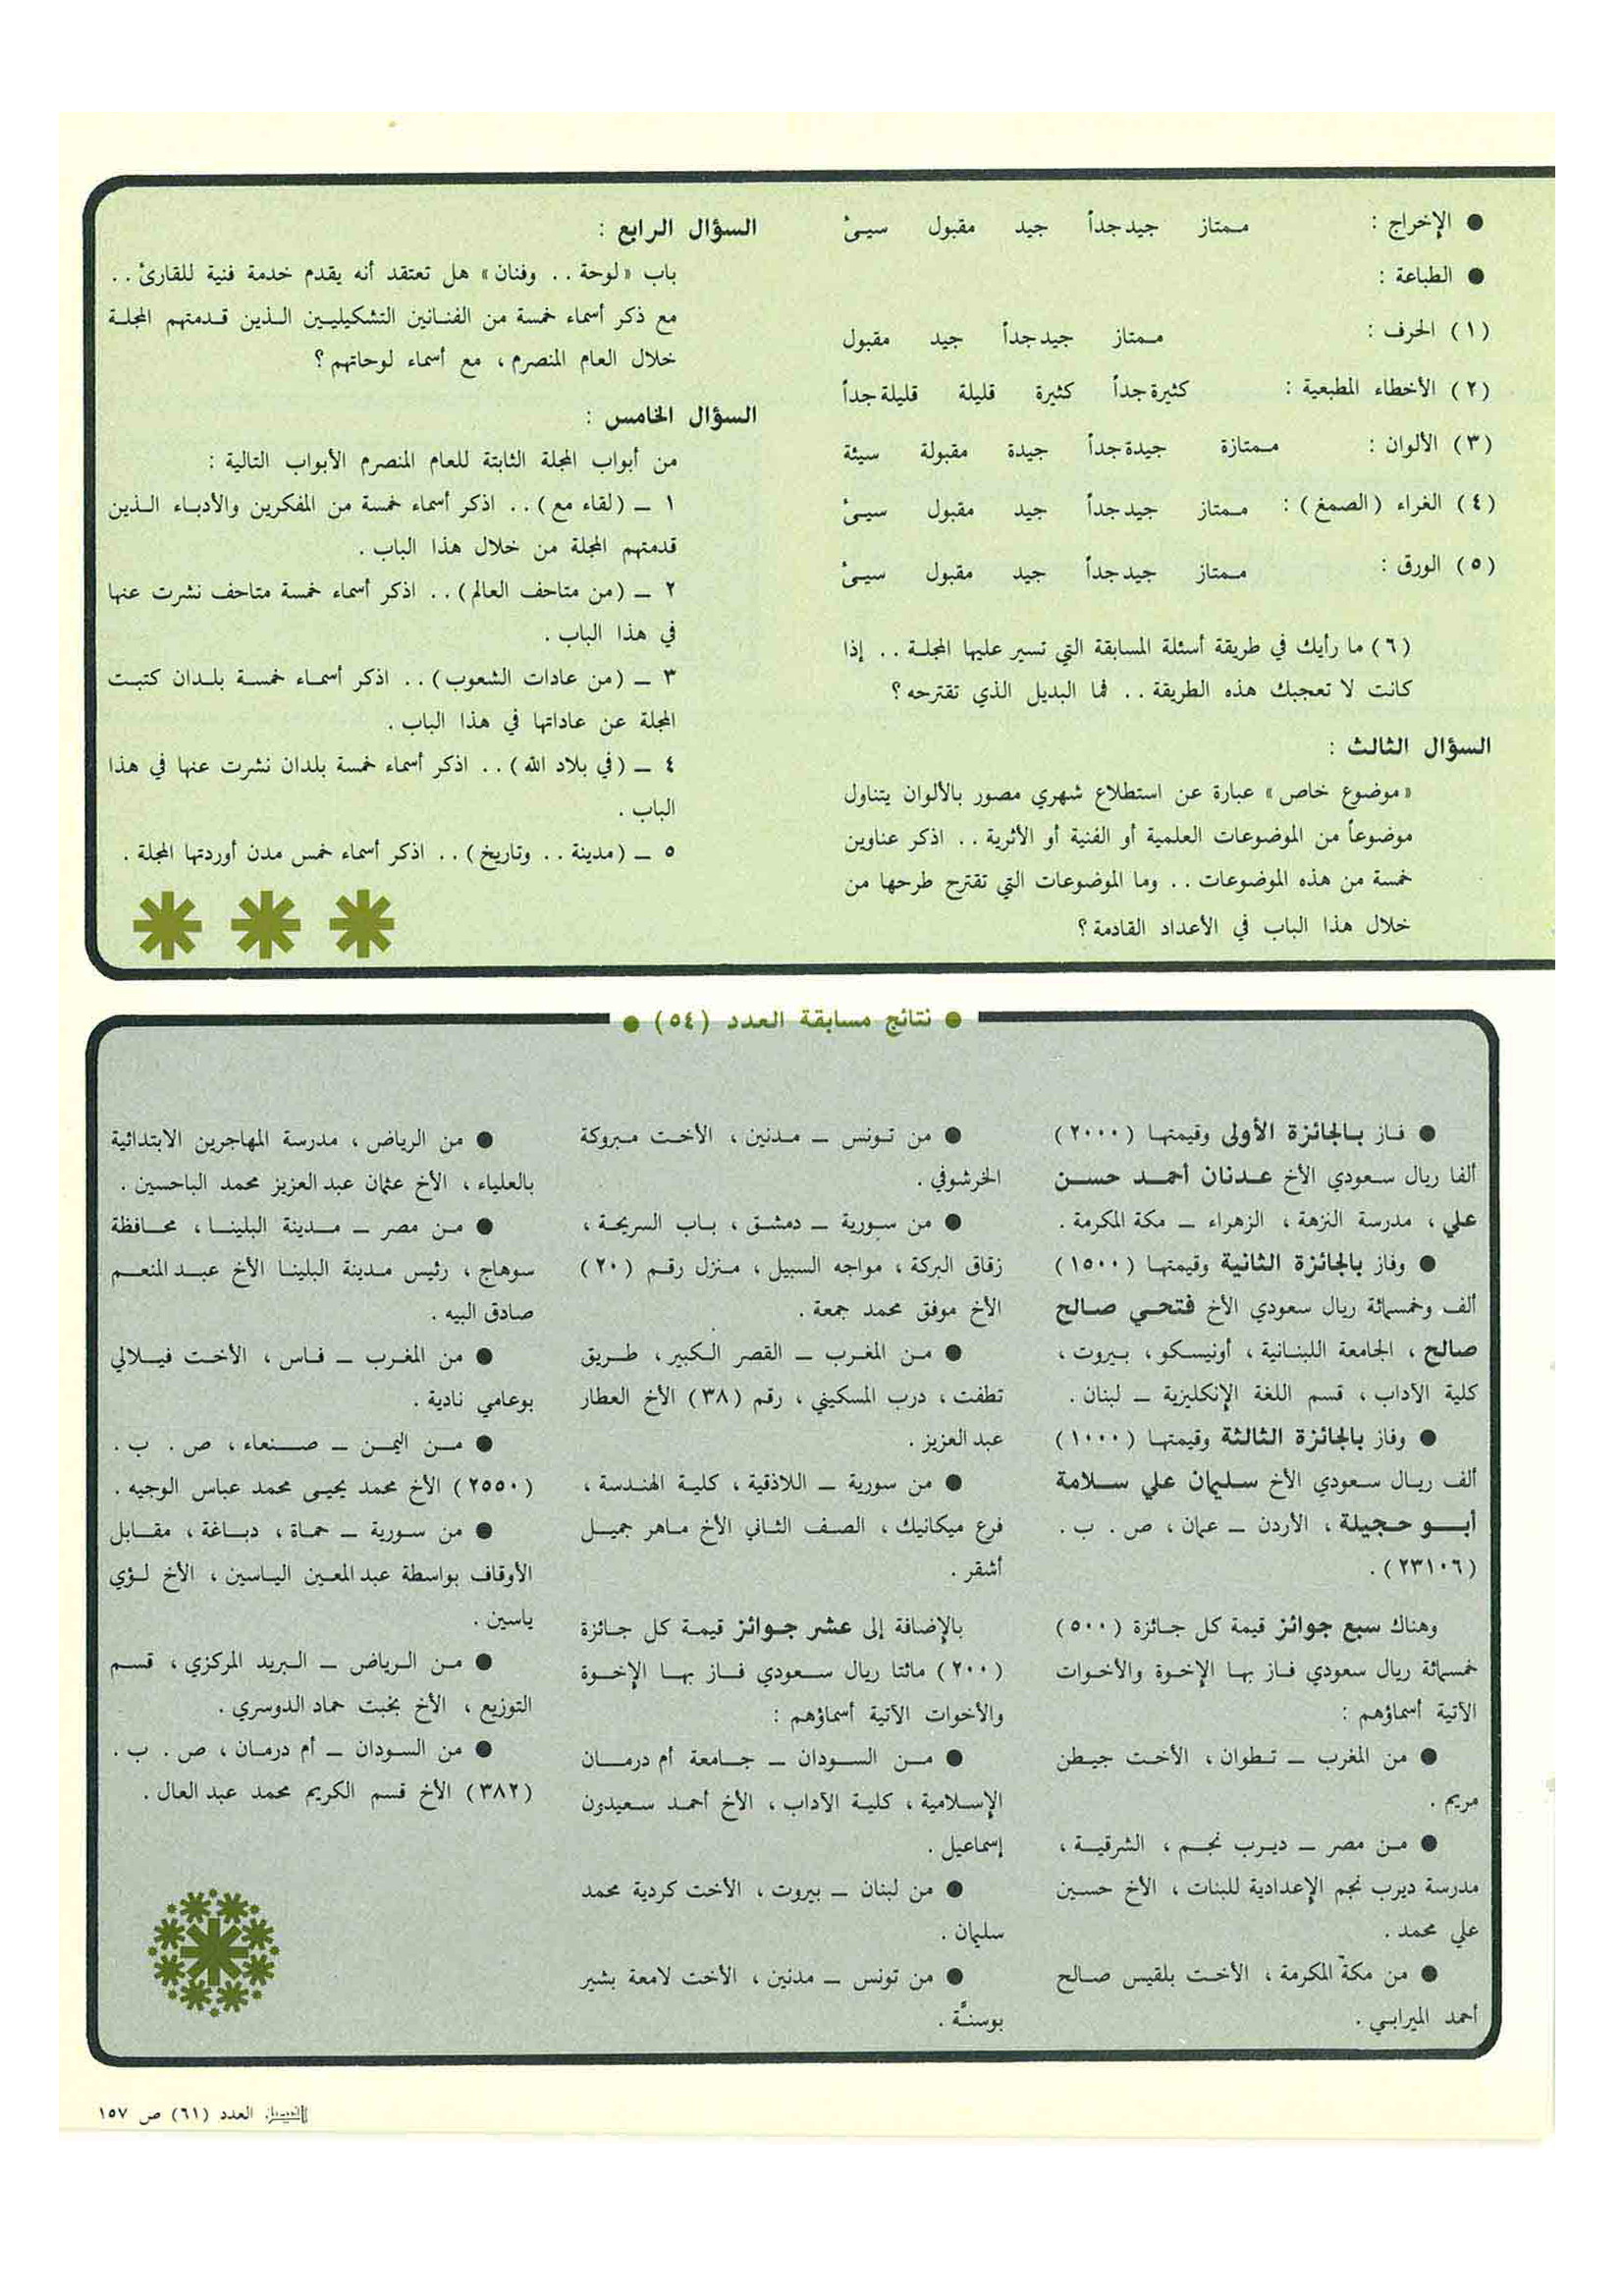 ● الإخراج : ممتاز جيد جداً جيد مقبول سيئ
● الطباعة :
(١) الحرف : ممتاز جيد جداً جيد مقبول
(٢) الأخطاء المطبعية : كثيرة جداً كثيرة قليلة قليلة جداً
(٣) الألوان : ممتازة جيدة جداً جيدة مقبولة سيئة
(٤) الغراء (الصمغ) : ممتاز جيد جداً جيد مقبول سيئ
(٥) الورق : ممتاز جيد جداً جيد مقبول سيئ
(٦) ما رأيك في طريقة أسئلة المسابقة التي تسير عليها المجلة .. إذا
كانت لا تعجبك هذه الطريقة .. فما البديل الذي تقترحه ؟
السؤال الثالث :
«موضوع خاص» عبارة عن استطلاع شهري مصور بالألوان يتناول
موضوعاً من الموضوعات العلمية أو الفنية أو الأثرية .. اذكر عناوين
خمسة من هذه الموضوعات .. وما الموضوعات التي تقترح طرحها من
خلال هذا الباب في الأعداد القادمة ؟
السؤال الرابع :
باب «لوحة .. وفنان» هل تعتقد أنه يقدم خدمة فنية للقارئ ..
مع ذكر أسماء خمسة من الفنانين التشكيليين الذين قدمتهم المجلة
خلال العام المنصرم ، مع أسماء لوحاتهم ؟
السؤال الخامس :
من أبواب المجلة الثابتة للعام المنصرم الأبواب التالية :
١ ــ (لقاء مع) .. اذكر أسماء خمسة من المفكرين والأدباء الذين
قدمتهم المجلة من خلال هذا الباب .
٢ ــ (من متاحف العالم) .. اذكر أسماء خمسة متاحف نشرت عنها
في هذا الباب .
٣ ــ (من عادات الشعوب) .. اذكر أسماء خمسة بلدان كتبت
المجلة عن عاداتها في هذا الباب .
٤ ــ (في بلاد الله) .. اذكر أسماء خمسة بلدان نشرت عنها في هذا
الباب .
٥ ــ (مدينة .. وتاريخ) .. اذكر أسماء خمس مدن أوردتها المجلة .
● نتائج مسابقة العدد (٥٤) ●
● فاز بالجائزة الأولى وقيمتها (٢٠٠٠)
ألفا ريال سعودي الأخ عدنان أحمد حسن
علي ، مدرسة النزهة ، الزهراء ــ مكة المكرمة .
● وفاز بالجائزة الثانية وقيمتها (١٥٠٠)
ألف وخمسمائة ريال سعودي الأخ فتحي صالح
صالح ، الجامعة اللبنانية ، أونيسكو ، بيروت ،
كلية الآداب ، قسم اللغة الإنكليزية ــ لبنان .
● وفاز بالجائزة الثالثة وقيمتها (١٠٠٠)
ألف ريال سعودي الأخ سليمان علي سلامة
أبو حجيلة ، الأردن ــ عمان ، ص . ب .
(٢٣١٠٦) .
وهناك سبع جوائز قيمة كل جائزة (٥٠٠)
خمسمائة ريال سعودي فاز بها الإخوة والأخوات
الآتية أسماؤهم :
● من المغرب ــ تطوان ، الأخت جيطن
مريم .
● من مصر ــ ديرب نجم ، الشرقية ،
مدرسة ديرب نجم الإعدادية للبنات ، الأخ حسين
علي محمد .
● من مكة المكرمة ، الأخت بلقيس صالح
أحمد الميرابي .
● من تونس ــ مدنين ، الأخت مبروكة
الخرشوفي .
● من سورية ــ دمشق ، باب السريجة ،
زقاق البركة ، مواجه السبيل ، منزل رقم (٢٠)
الأخ موفق محمد جمعة .
● من المغرب ــ القصر الكبير ، طريق
تطفت ، درب المسكيني ، رقم (٣٨) الأخ العطار
عبد العزيز .
● من سورية ــ اللاذقية ، كلية الهندسة ،
فرع ميكانيك ، الصف الثاني الأخ ماهر جميل
أشقر .
بالإضافة إلى عشر جوائز قيمة كل جائزة
(٢٠٠) مائتا ريال سعودي فاز بها الإخوة
والأخوات الآتية أسماؤهم :
● من السودان ــ جامعة أم درمان
الإسلامية ، كلية الآداب ، الأخ أحمد سعيدون
إسماعيل .
● من لبنان ــ بيروت ، الأخت كردية محمد
سليمان .
● من تونس ــ مدنين ، الأخت لامعة بشير
بوسنَّة .
● من الرياض ، مدرسة المهاجرين الابتدائية
بالعلياء ، الأخ عثمان عبد العزيز محمد الباحسين .
● من مصر ــ مدينة البلينا ، محافظة
سوهاج ، رئيس مدينة البلينا الأخ عبد المنعم
صادق البيه .
● من المغرب ــ فاس ، الأخت فيلالي
بوعامي نادية .
● من اليمن ــ صنعاء ، ص . ب .
(٢٥٥٠) الأخ محمد يحيى محمد عباس الوجيه .
● من سورية ــ حماة ، دباغة ، مقابل
الأوقاف بواسطة عبد المعين الياسين ، الأخ لؤي
ياسين .
● من الرياض ــ البريد المركزي ، قسم
التوزيع ، الأخ بخيت حماد الدوسري .
● من السودان ــ أم درمان ، ص . ب .
(٣٨٢) الأخ قسم الكريم محمد عبد العال .
الفيصل العدد (٦١) ص ١٥٧